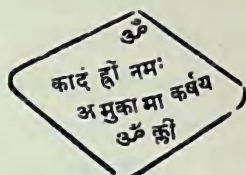 ॐ
कादं ह्रों नमः
अमुकामा कर्षय
ॐ क्लीं